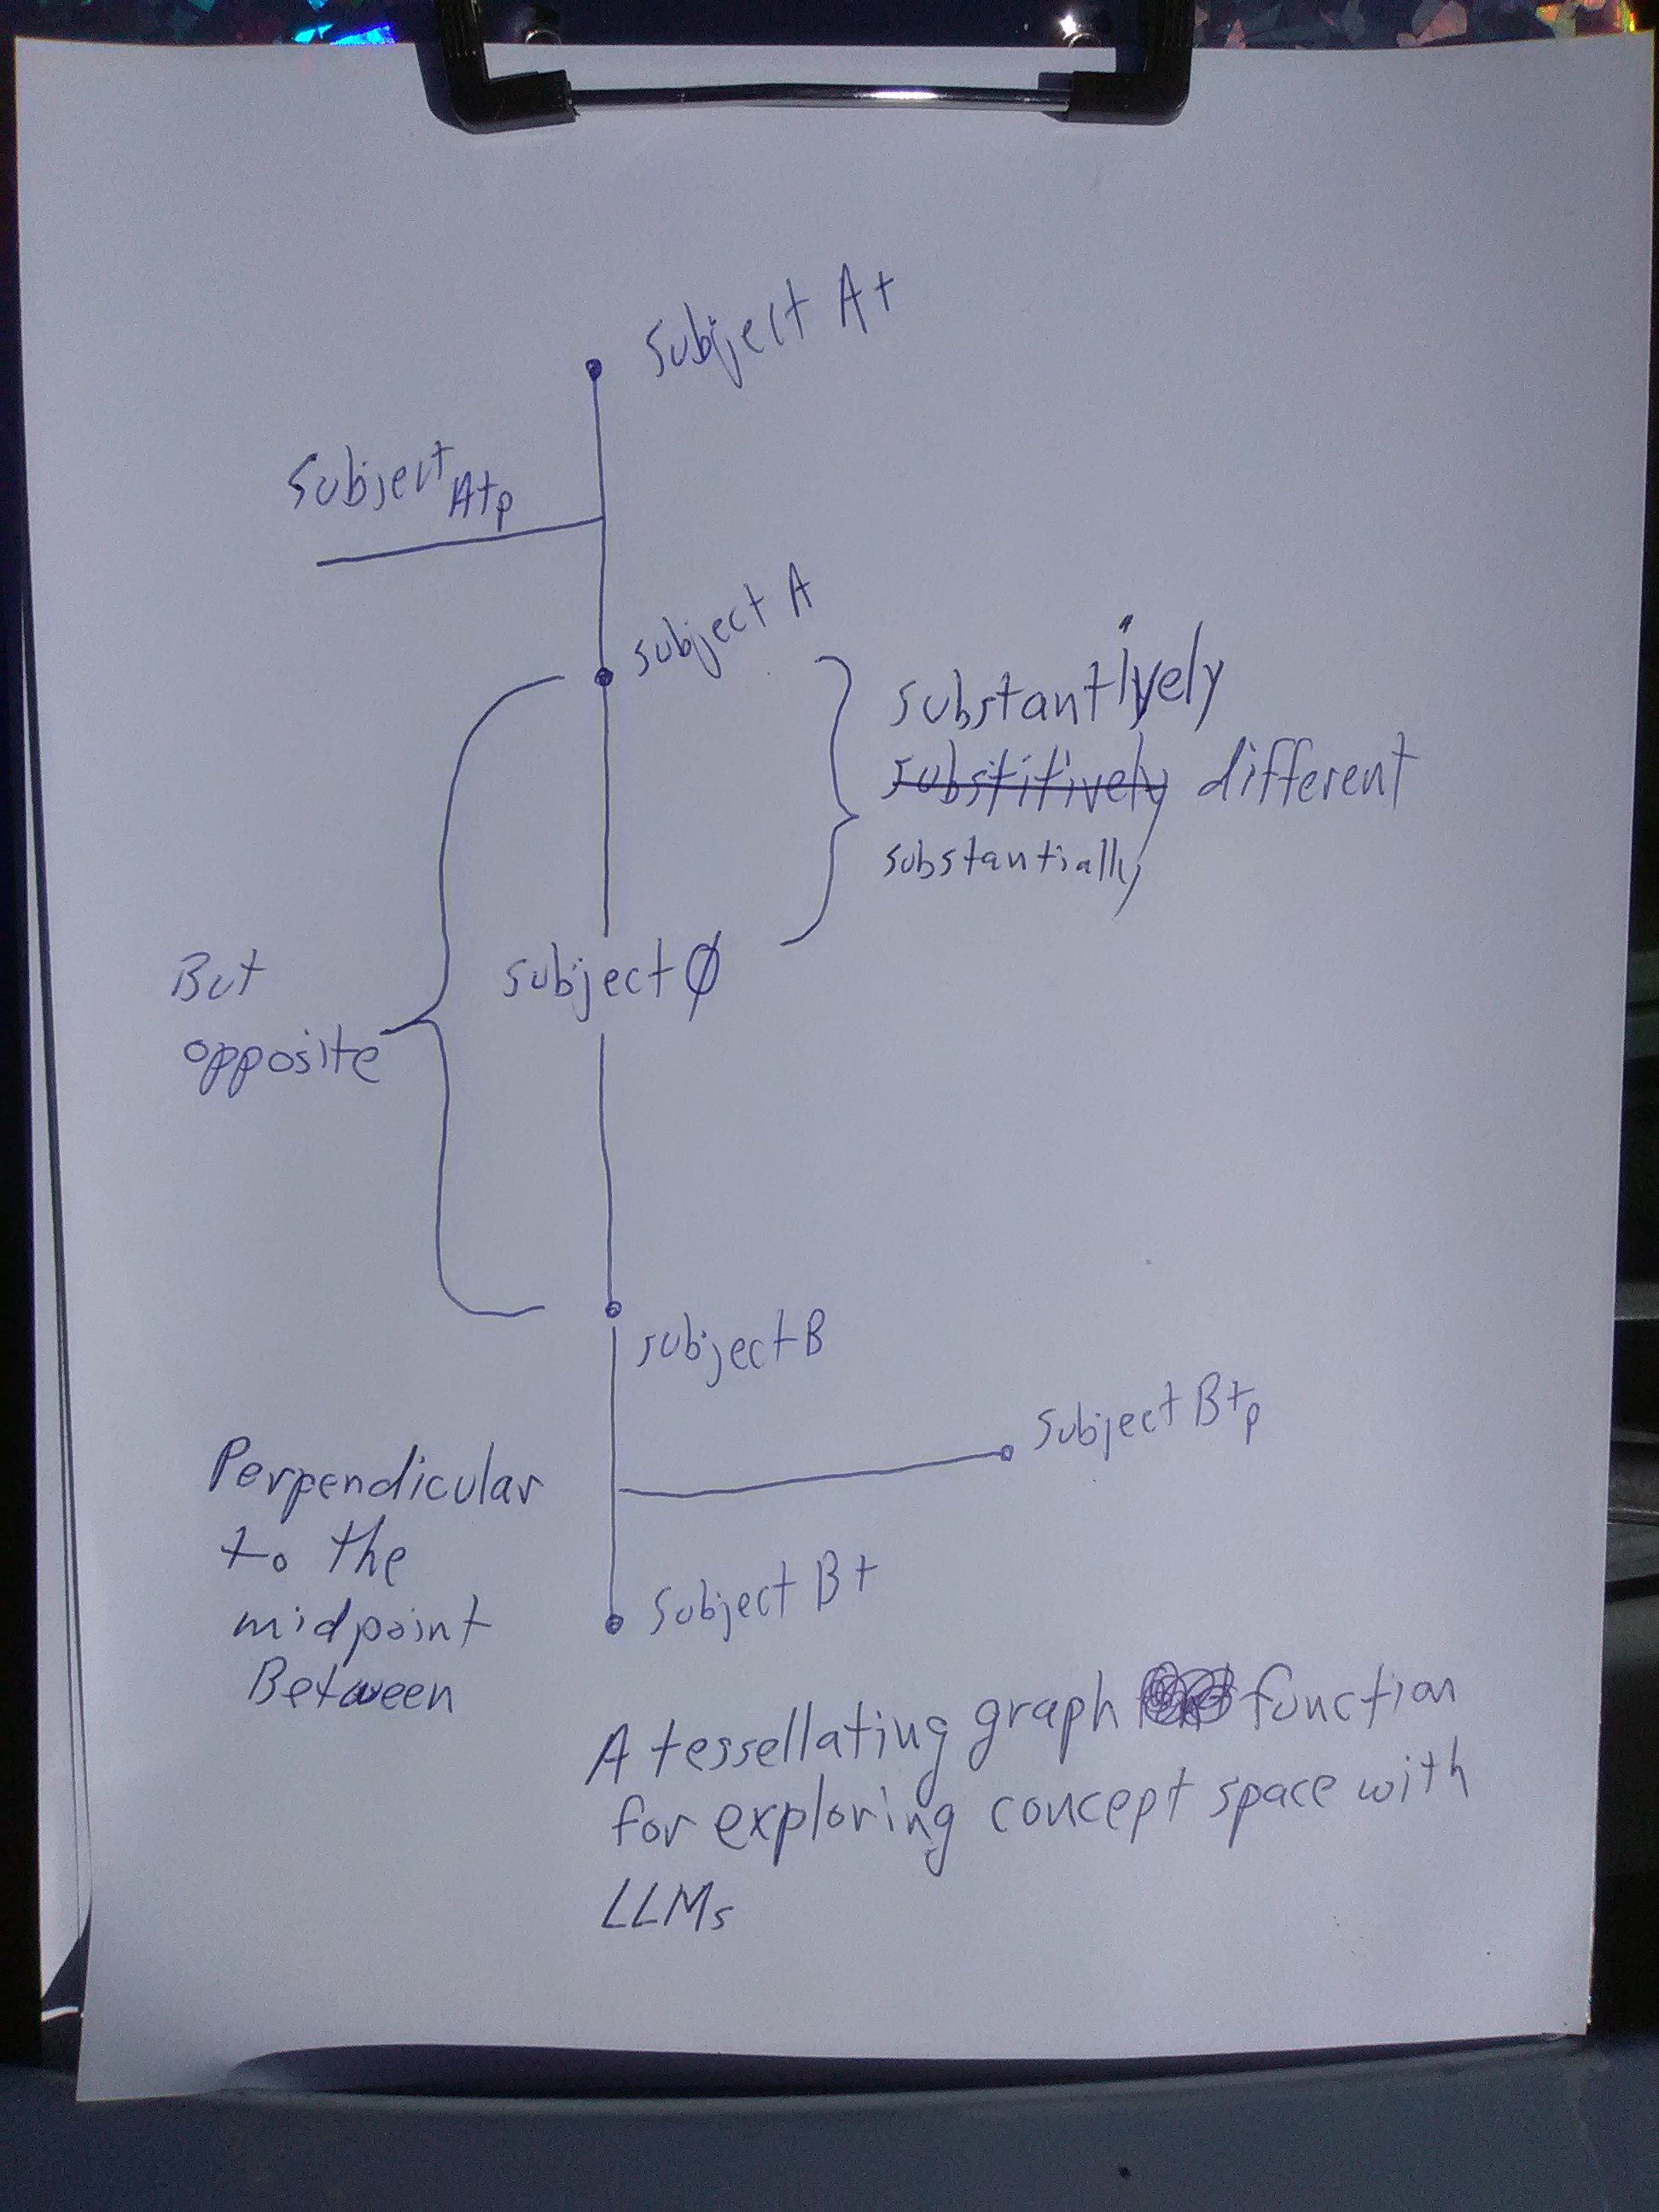 Subject A+
Subject A+p
subject A
substantively
substitively different
substantially
But
opposite
subject Ø
subject B
Subject B+p
Perpendicular
to the
midpoint
Between
Subject B+
A tessellating graph function
for exploring concept space with
LLMs